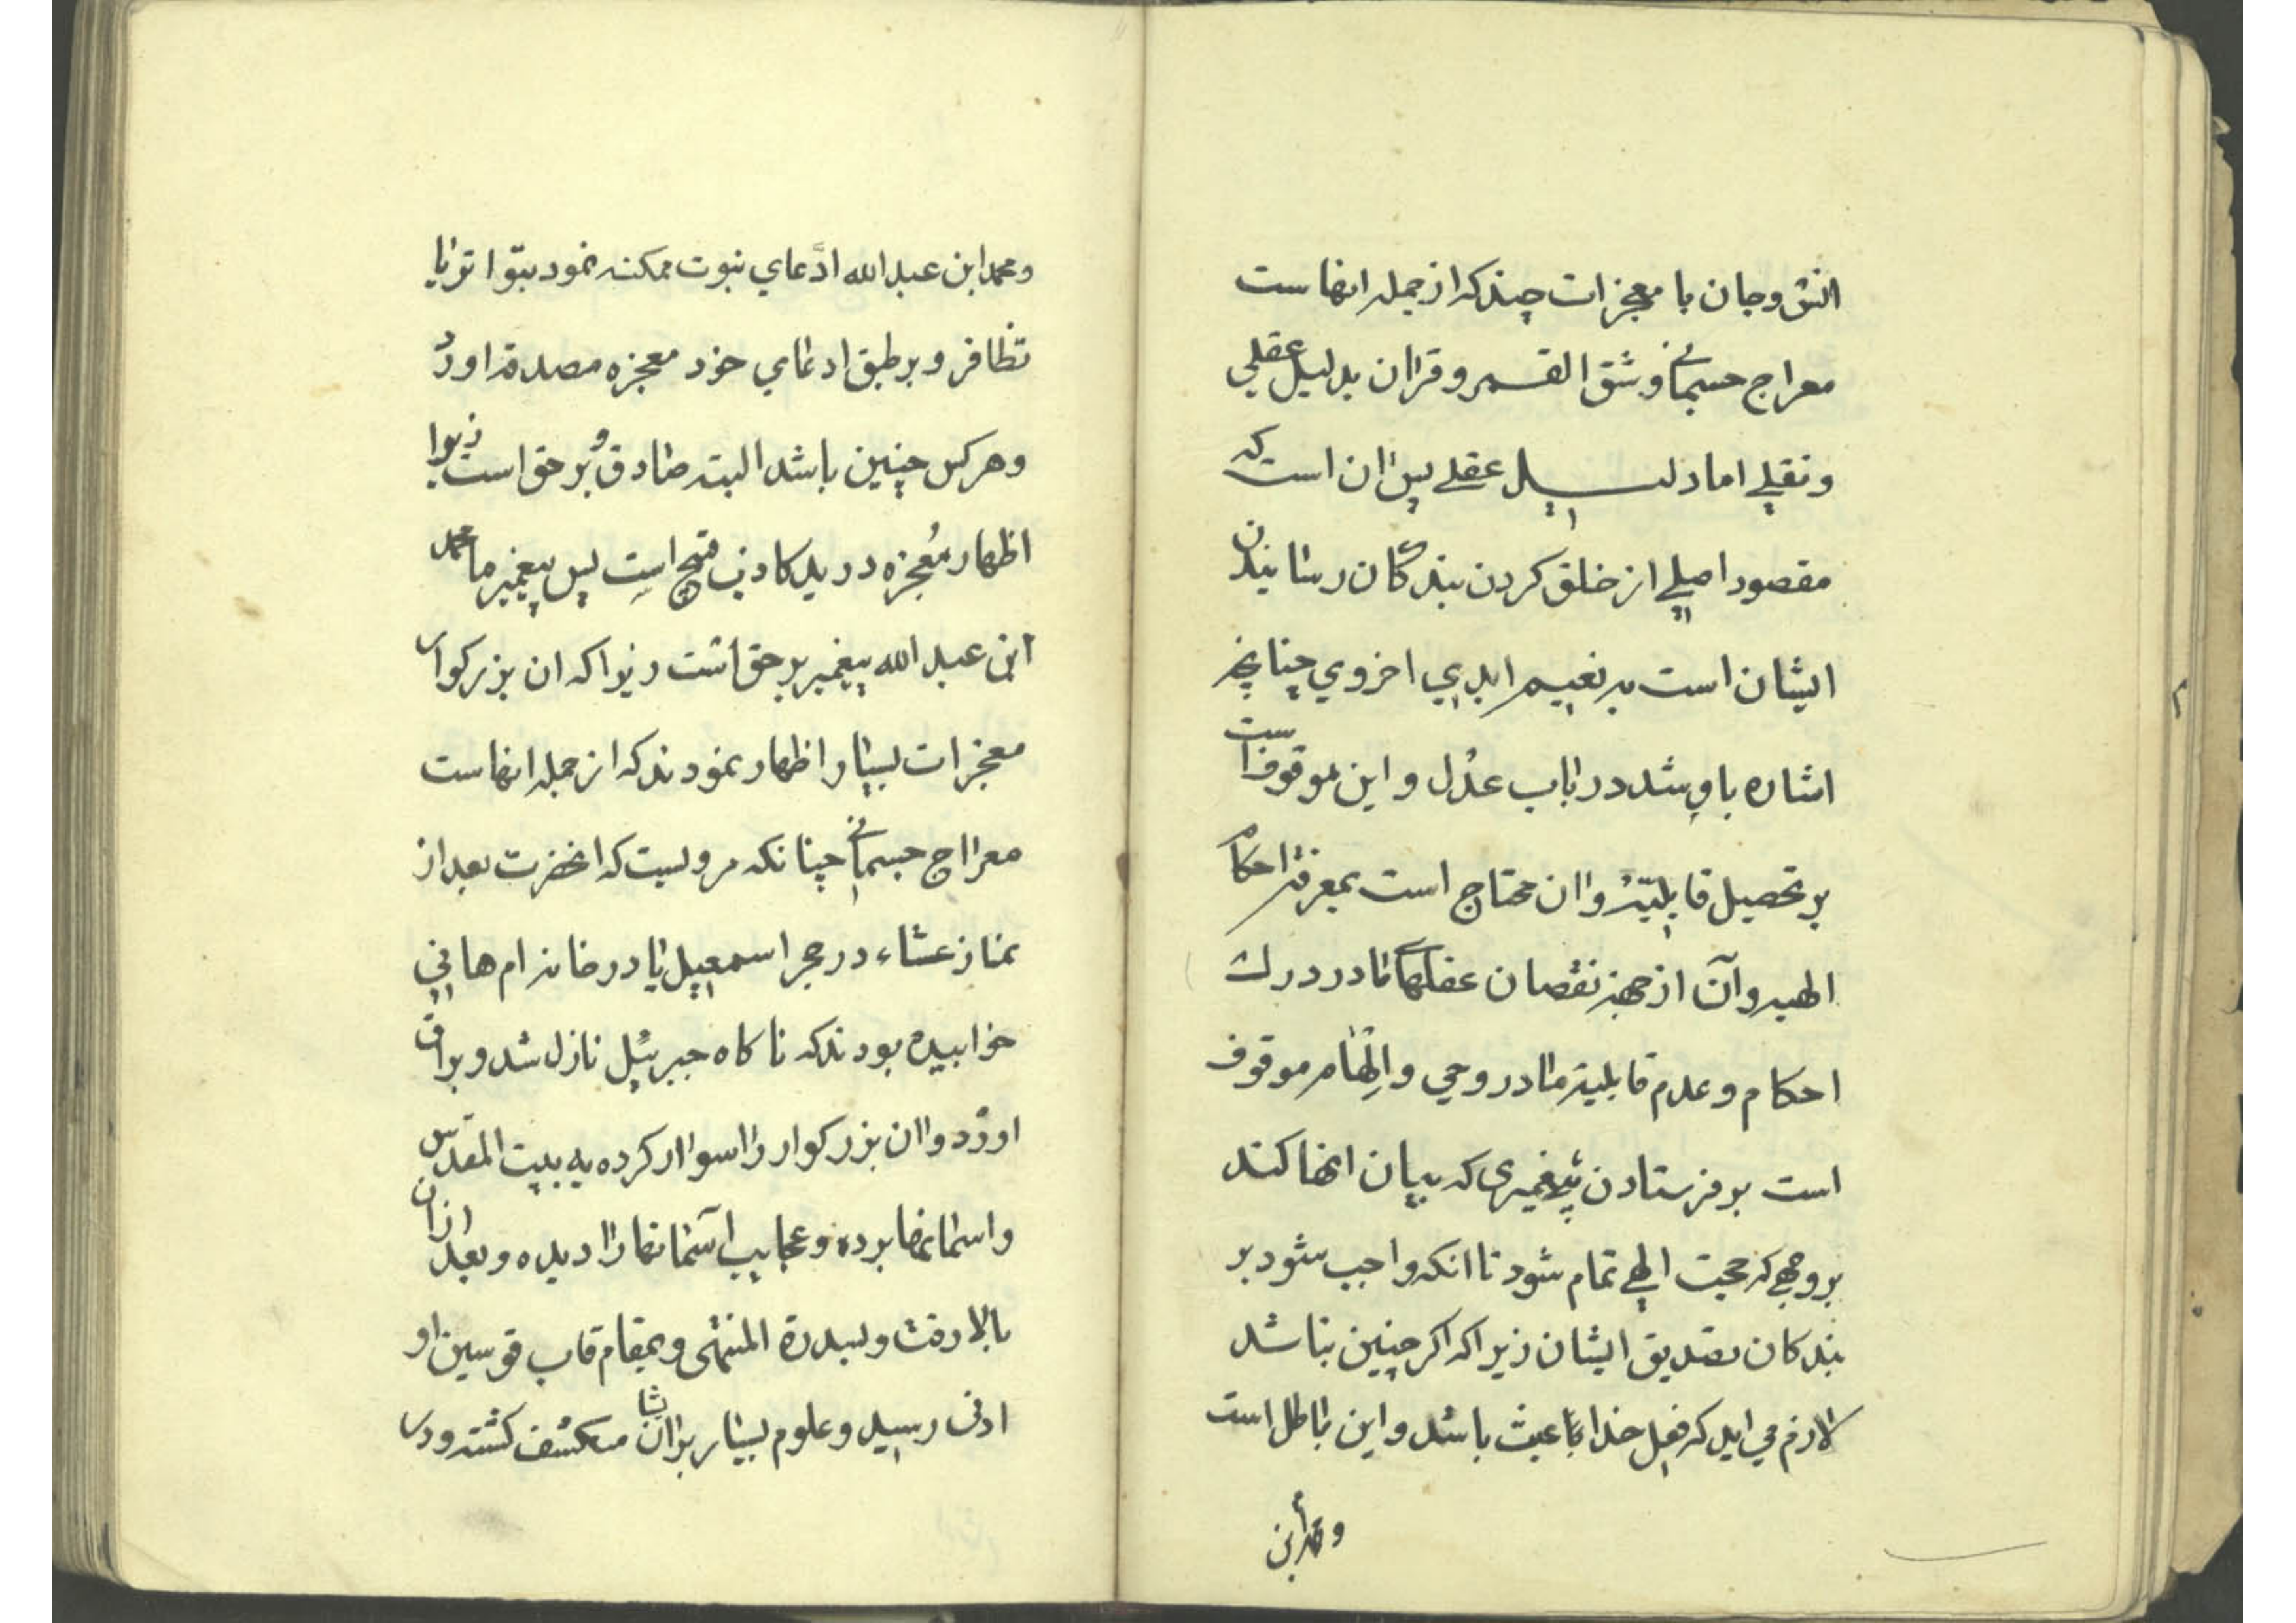 انس و جان با معجزات چند که از جمله انهاست
معراج جسمانی و شق القمر و قراان بدلیل عقلی
و نقلی اما دلیل عقلی پس ان است که
مقصود اصلی از خلق کردن بندگان رسانیدن
ایشان است به نعیم ابدی اخروی چنانچه
اشاره باو شد در باب عدل و این موقوف است
بر تحصیل قابلیة و اان محتاج است بمعرفة احکام
الهیه و آن از جهة نقصان عقلهای ما در درک
احکام و عدم قابلیة ما در وحی و الهام موقوف
است بر فرستادن پیغمبری که بیان انها کند
بر وجهی که حجت الهی تمام شود تا انکه واجب شود بر
بندکان تصدیق ایشان زیرا که اکر چنین نباشد
لازم می اید که فعل خدا با عبث باشد و این باطل است
و محمد ابن
و محمد ابن عبد الله ادَّعای نبوت بمکه نمود بتواتر یا
تظافر و بر طبق ادعای خود معجزه مصدقه اورد
و هر کس چنین باشد البته صادق و بر حق است زیرا
اظهار مُعجزه در ید کاذب قبیح است پس پیغمبر ما محمد
ابن عبد الله پیغمبر بر حق است زیرا که ان بزرکوار
معجزات بسیار اظهار نمودند که از جمله انهاست
معرااج جسمانی چنانکه مرویست که انحضرت بعد از
نماز عشاء در حجر اسمعیل یا در خانه ام هانی
خوابیده بودند که ناکاه جبرئیل نازل شد و براق
اورد و اان بزرکوار را سواار کرده به بیت المقدس
و اسمانها برده و عجایب آسمانها راا دیده و بعد ازان
بالا رفت و بسدرة المنتهی و بمقام قاب قوسین او
ادنی رسید و علوم بسیار بر ایشان منکشف کشته و در